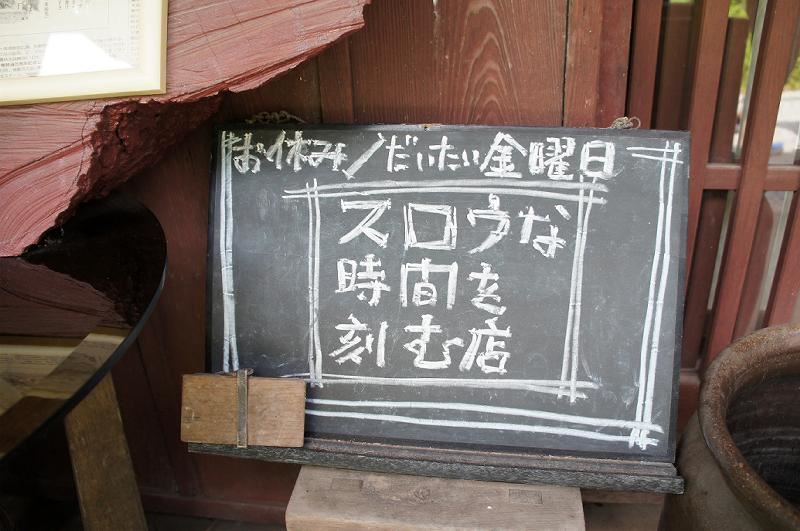 お休み/だいたい金曜日
スロウな
時間を
刻む店